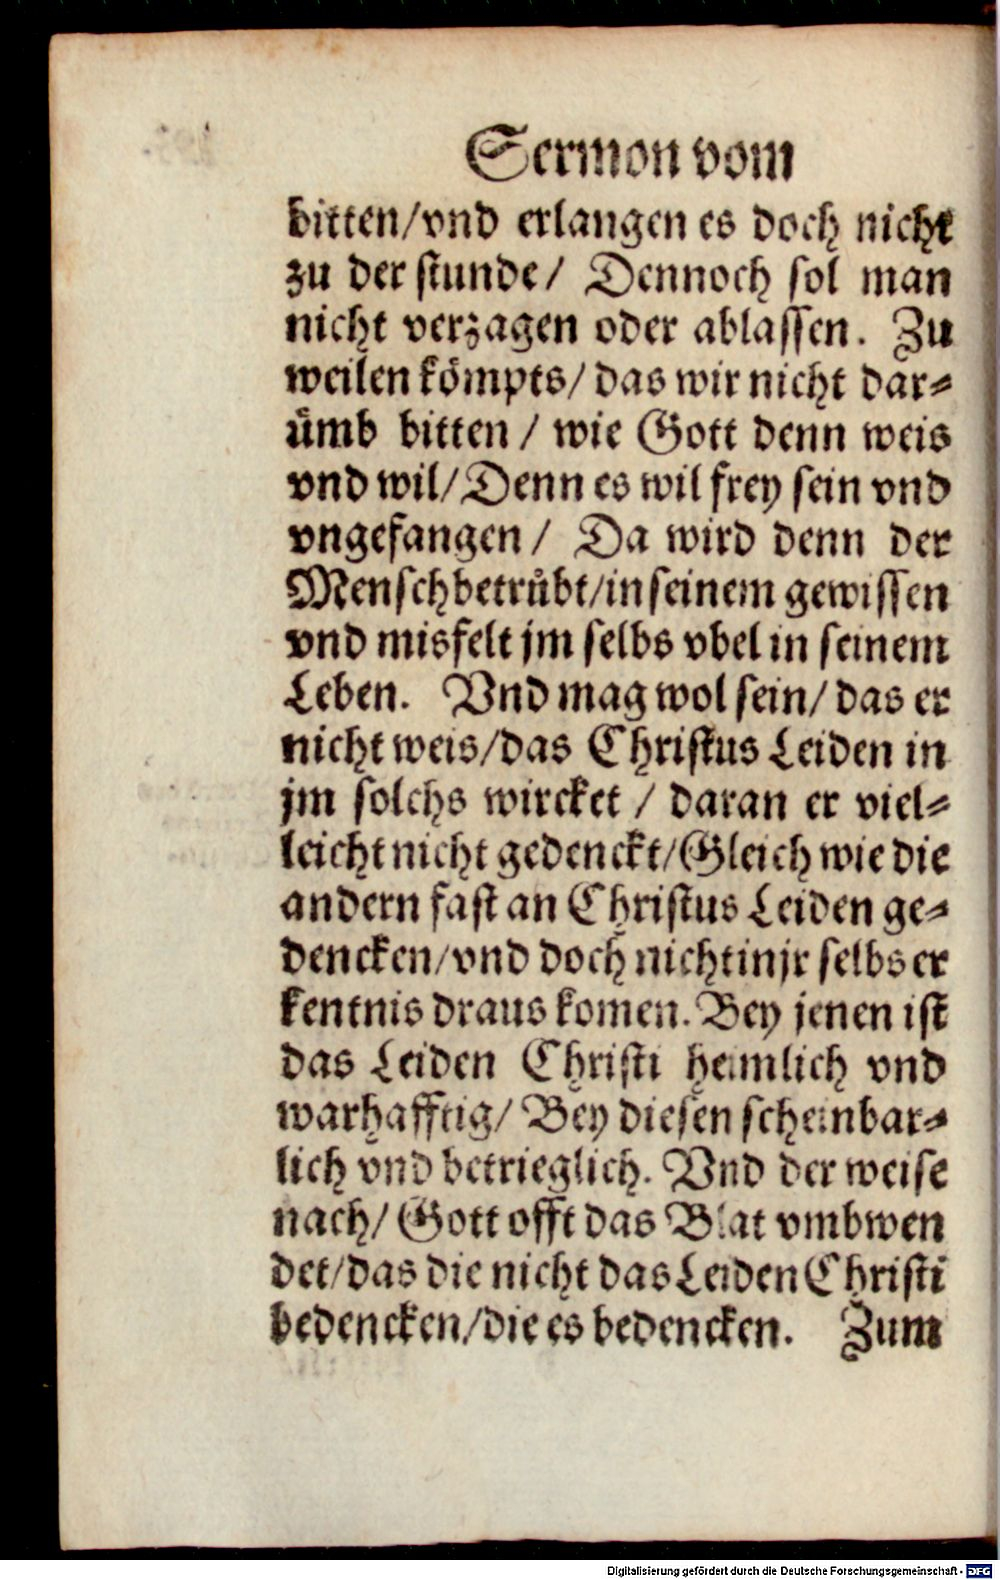 Sermon vom
bitten/vnd erlangen es doch nicht
zu der stunde/ Dennoch sol man
nicht verzagen oder ablassen. Zu
weilen kömpts/ das wir nicht dar⸗
ümb bitten / wie Gott denn weis
vnd wil/ Denn es wil frey sein vnd
vngefangen / Da wird denn der
Mensch betrübt/in seinem gewissen
vnd misfelt jm selbs vbel in seinem
Leben. Vnd mag wol sein/ das er
nicht weis/das Christus Leiden in
jm solchs wircket / daran er viel⸗
leicht nicht gedenckt/Gleich wie die
andern fast an Christus Leiden ge⸗
dencken/vnd doch nicht in jr selbs er
kentnis draus komen. Bey jenen ist
das Leiden Christi heimlich vnd
warhafftig/ Bey diesen scheinbar⸗
lich vnd betrieglich. Vnd der weise
nach/ Gott offt das Blat vmbwen
det/das die nicht das Leiden Christi
bedencken/die es bedencken. Zum
Digitalisierung gefördert durch die Deutsche Forschungsgemeinschaft - DFG